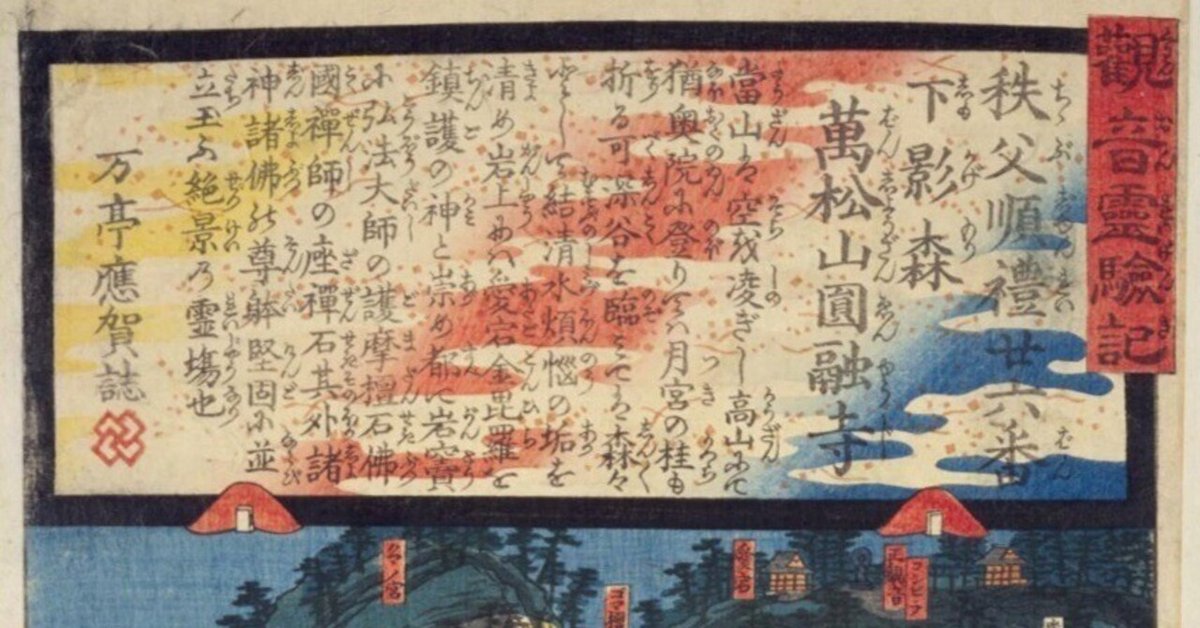 觀音靈驗記
秩父順禮廿六番
下影森
萬松山圓融寺
當山は空を凌ぎし高山にて
猶奥院に登りては月宮の桂も
折る可深谷を臨みては森々
として結清水煩悩の垢を
清め岩上には愛宕金毘羅を
鎮護の神と崇め都て岩窟
に弘法大師の護摩壇石佛
國禪師の座禪石其外諸
神諸佛の尊躰堅固に並
立玉ふ絶景の霊場也
万亭應賀誌
コンピラ